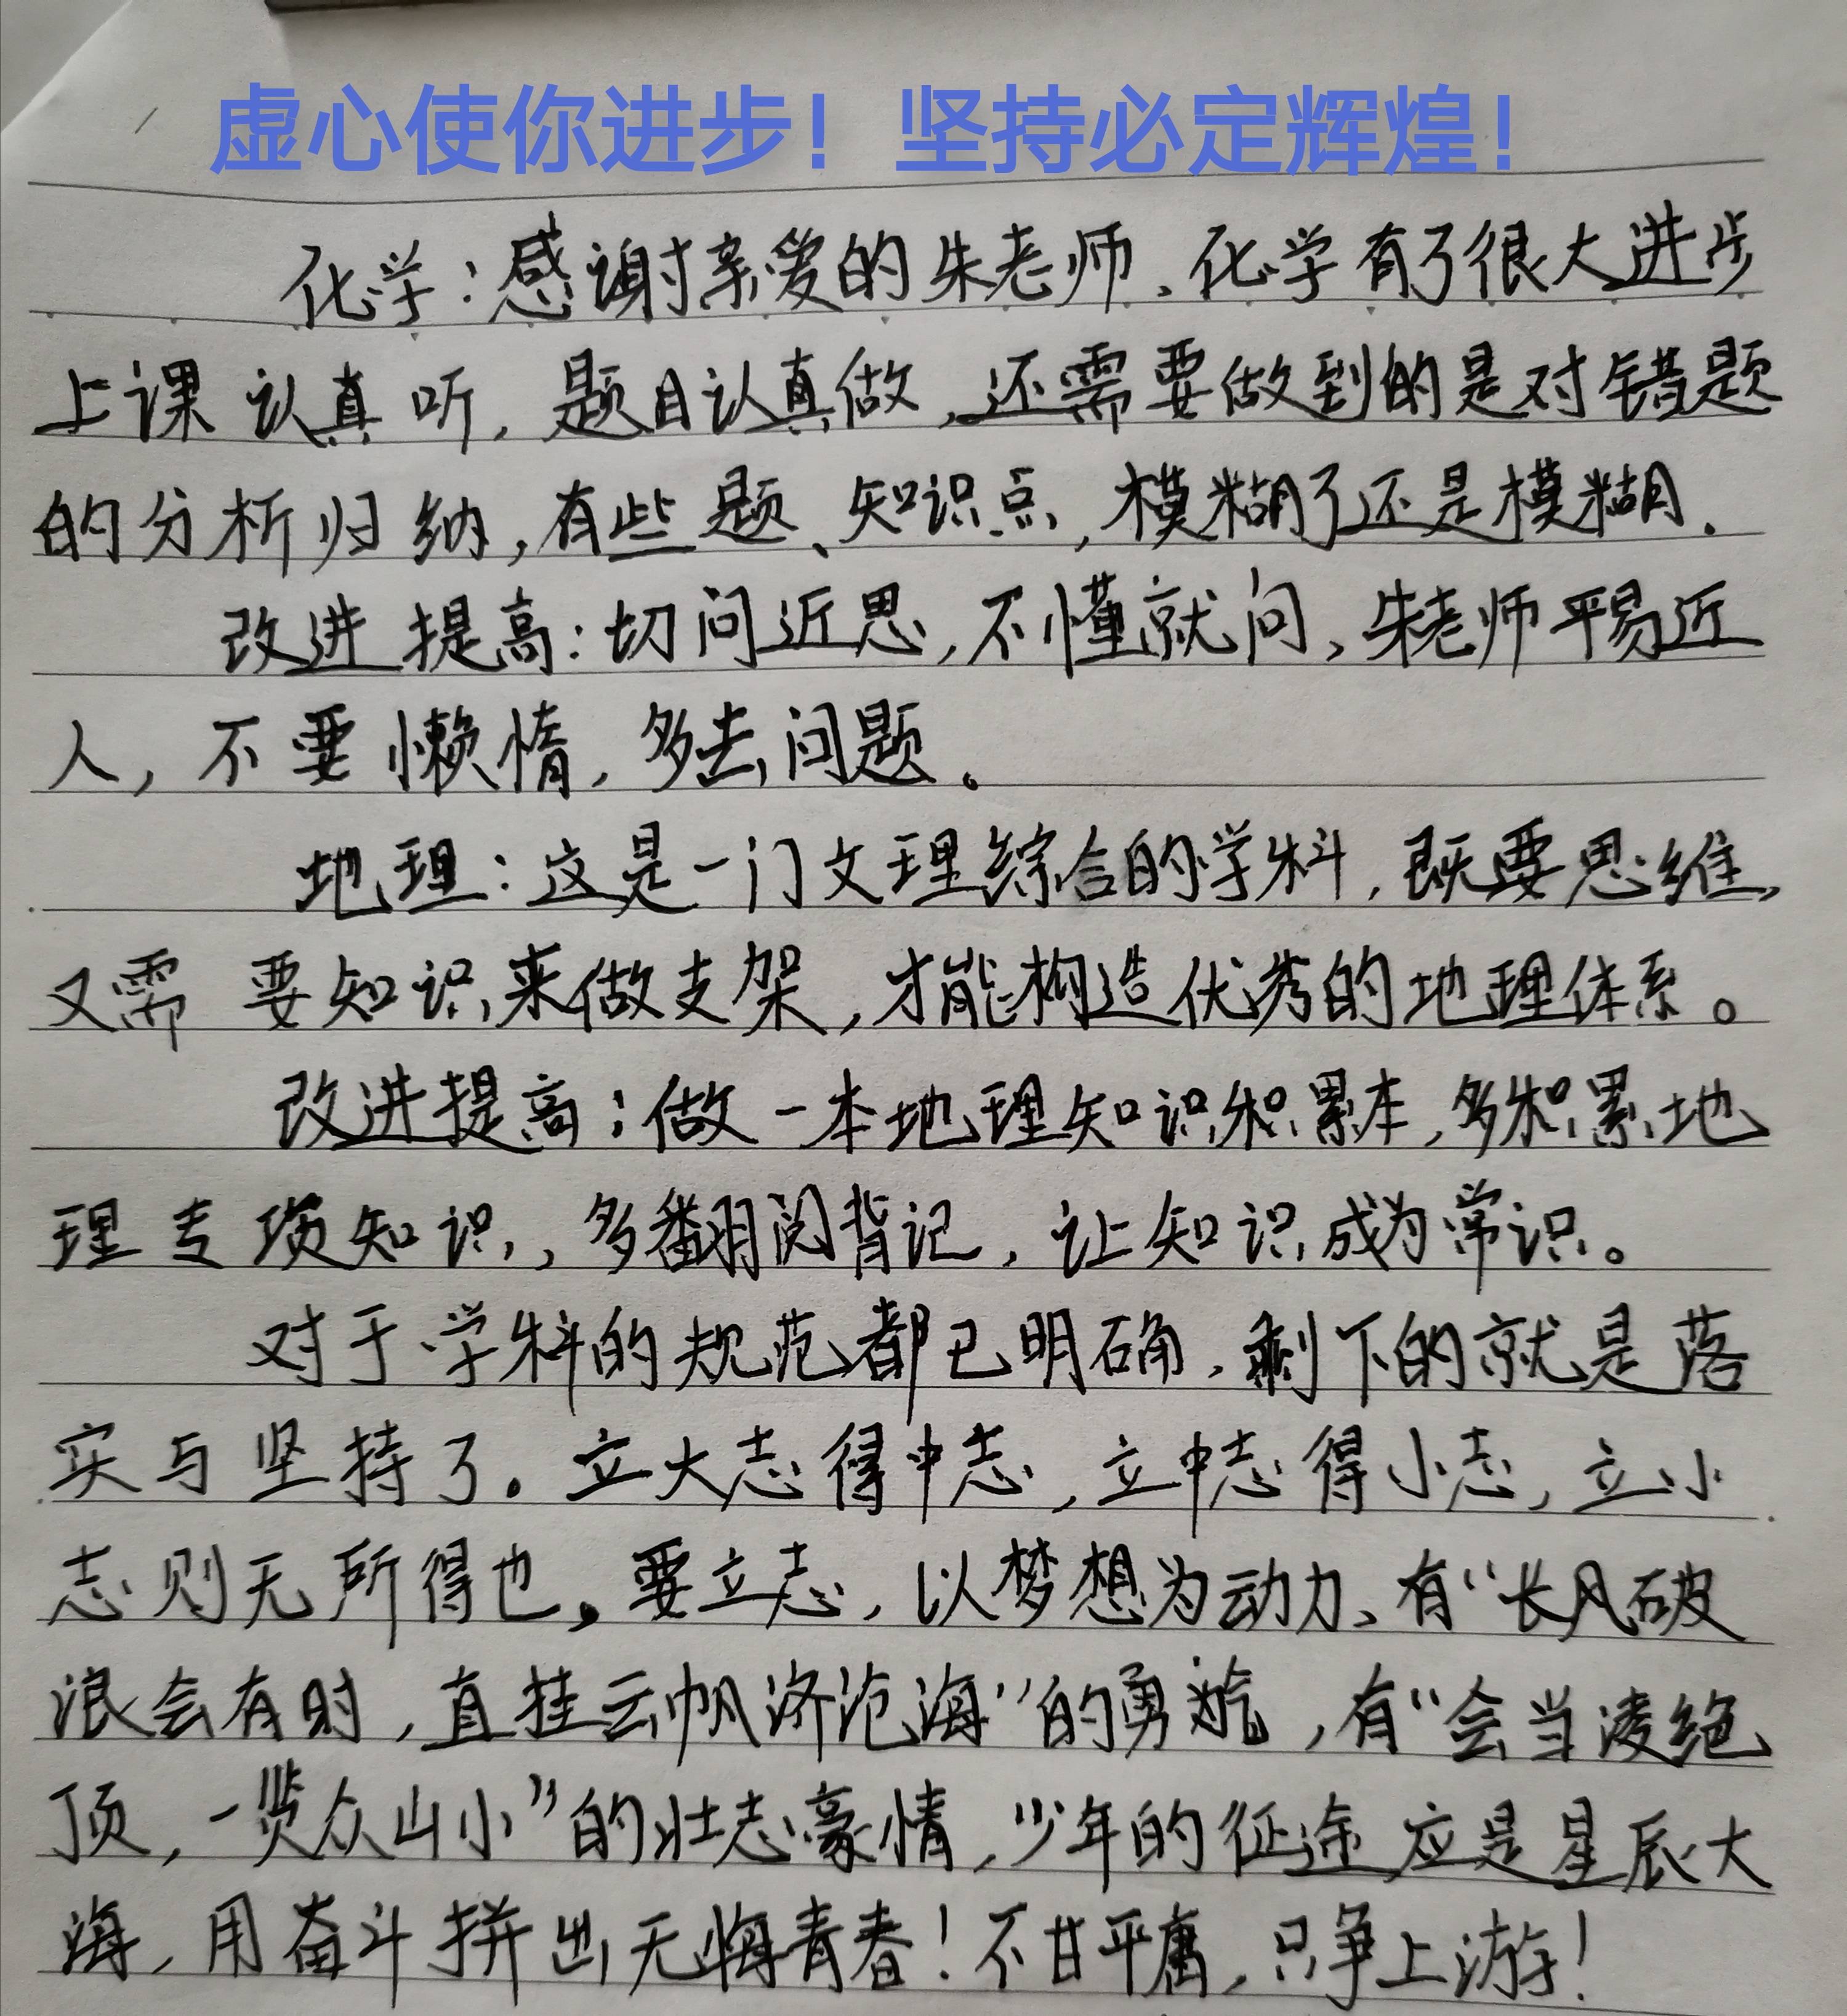 虚心使你进步！坚持必定辉煌！
化学：感谢亲爱的朱老师、化学有了很大进步
上课认真听，题目认真做，还需要做到的是对错题
的分析归纳，有些题、知识点，模糊了还是模糊．
改进提高：切问近思，不懂就问，朱老师平易近
人，不要懒惰，多去问题。
地理：这是一门文理综合的学科，既要思维，
又需要知识来做支架，才能构造优秀的地理体系。
改进提高：做一本地理知识积累本，多积累地
理专项知识，多翻阅背记，让知识成为常识。
对于学科的规范都已明确，剩下的就是落
实与坚持了。立大志得中志，立中志得小志，立小
志则无所得也。要立志，以梦想为动力、有“长风破
浪会有时，直挂云帆济沧海”的勇气，有“会当凌绝
顶，一览众山小”的壮志豪情，少年的征途应是星辰大
海，用奋斗拼出无悔青春！不甘平庸，只争上游！